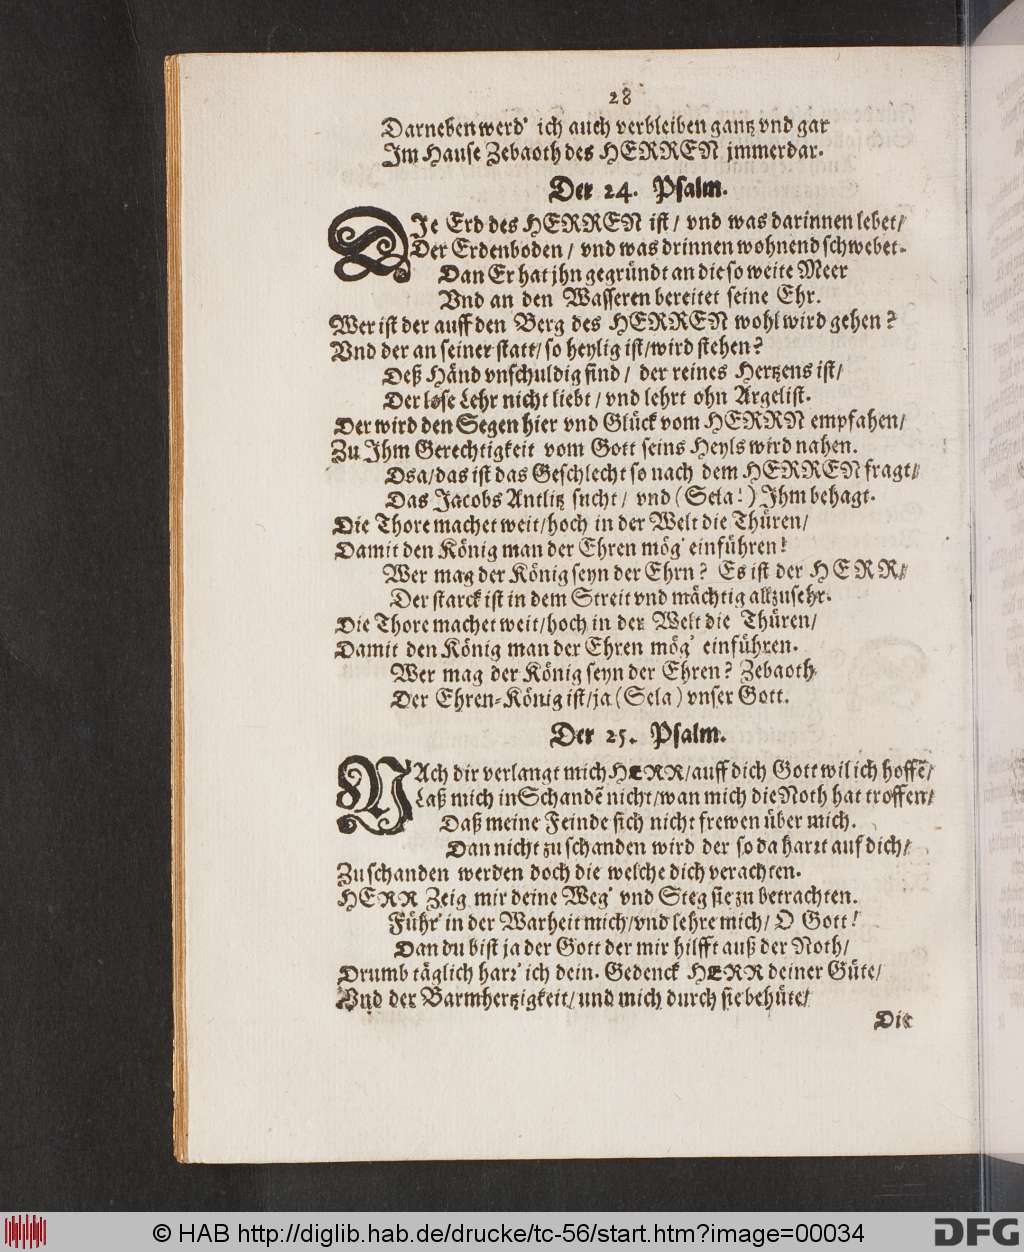 28
Darneben werd' ich auch verbleiben gantz vnd gar
Im Hause Zebaoth des HERREN jmmerdar.
Der 24. Psalm.
DIe Erd des HERREN ist / vnd was darinnen lebet/
Der Erdenboden / vnd was drinnen wohnend schwebet.
Dan Er hat jhn gegründt an die so weite Meer
Vnd an den Wasseren bereitet seine Ehr.
Wer ist der auff den Berg des HERREN wohl wird gehen?
Vnd der an seiner statt/ so heylig ist/ wird stehen?
Deß Händ vnschuldig sind / der reines Hertzens ist/
Der lose Lehr nicht liebt / vnd lehrt ohn Argelist.
Der wird den Segen hier vnd Glück vom HERRN empfahen/
Zu Ihm Gerechtigkeit vom Gott seins Heyls wird nahen.
Dsa/ das ist das Geschlecht so nach dem HERREN fragt/
Das Jacobs Antlitz sucht / vnd (Sela!) Ihm behagt.
Die Thore machet weit/ hoch in der Welt die Thüren/
Damit den König man der Ehren mög' einführen!
Wer mag der König seyn der Ehrn? Es ist der HERR/
Der starck ist in dem Streit vnd mächtig allzusehr.
Die Thore machet weit/ hoch in der Welt die Thüren/
Damit den König man der Ehren mög' einführen.
Wer mag der König seyn der Ehren? Zebaoth
Der Ehren-König ist/ ja (Sela) vnser Gott.
Der 25. Psalm.
NAch dir verlangt mich HERR/ auff dich Gott wil ich hoffē/
Laß mich in Schandē nicht/ wan mich die Noth hat troffen/
Daß meine Feinde sich nicht frewen über mich.
Dan nicht zu schanden wird der so da harrt auf dich/
Zu schanden werden doch die welche dich verachten.
HERR Zeig mir deine Weg' vnd Steg sie zu betrachten.
Führ' in der Warheit mich/ vnd lehre mich/ O Gott!
Dan du bist ja der Gott der mir hilfft auß der Noth/
Drumb täglich harr' ich dein. Gedenck HERR deiner Güte/
Vnd der Barmhertzigkeit/ und mich durch sie behüte/
Die
© HAB http://diglib.hab.de/drucke/tc-56/start.htm?image=00034
DFG